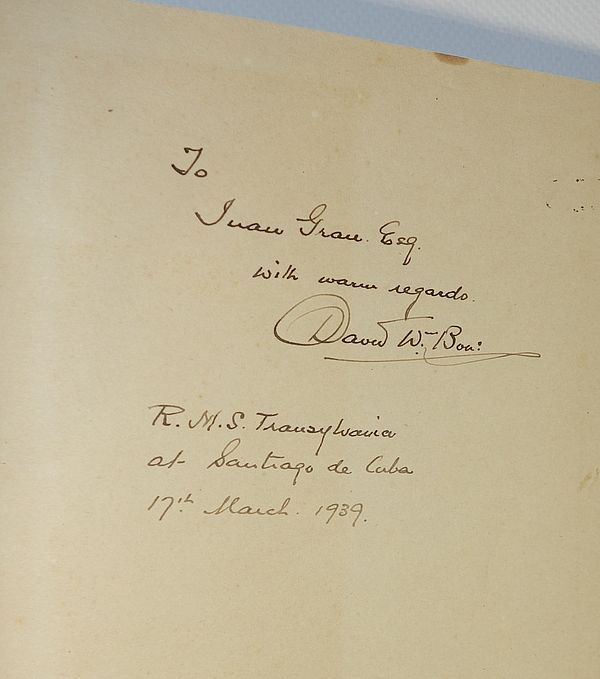 To
Juan Grau Esq.
with warm regards.
David Wm Bone
R.M.S. Transylvania
at Santiago de Cuba
17th March. 1939.